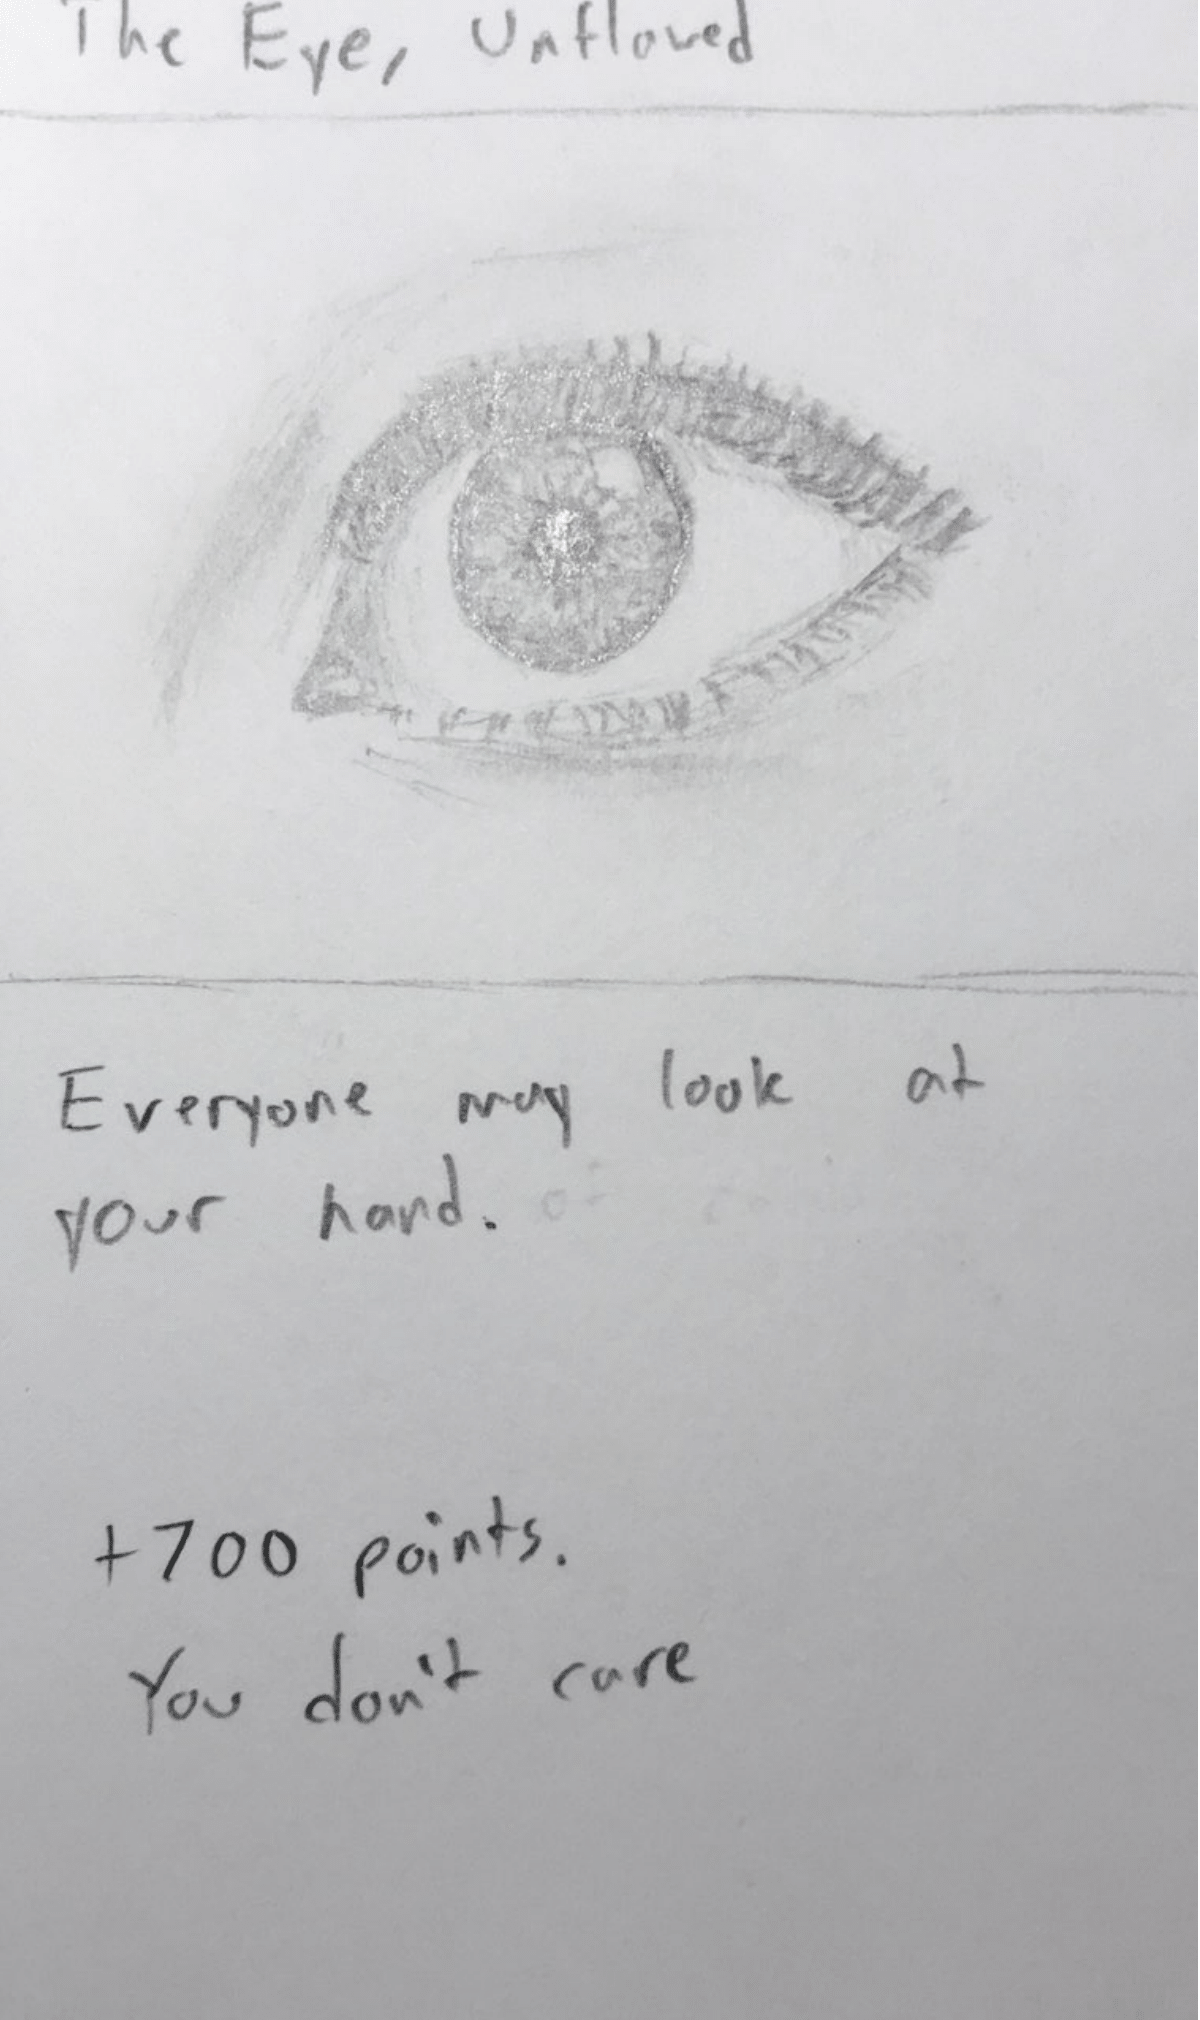 The Eye, Unflowed
Everyone may look at
your hand.
+700 points.
You don't care